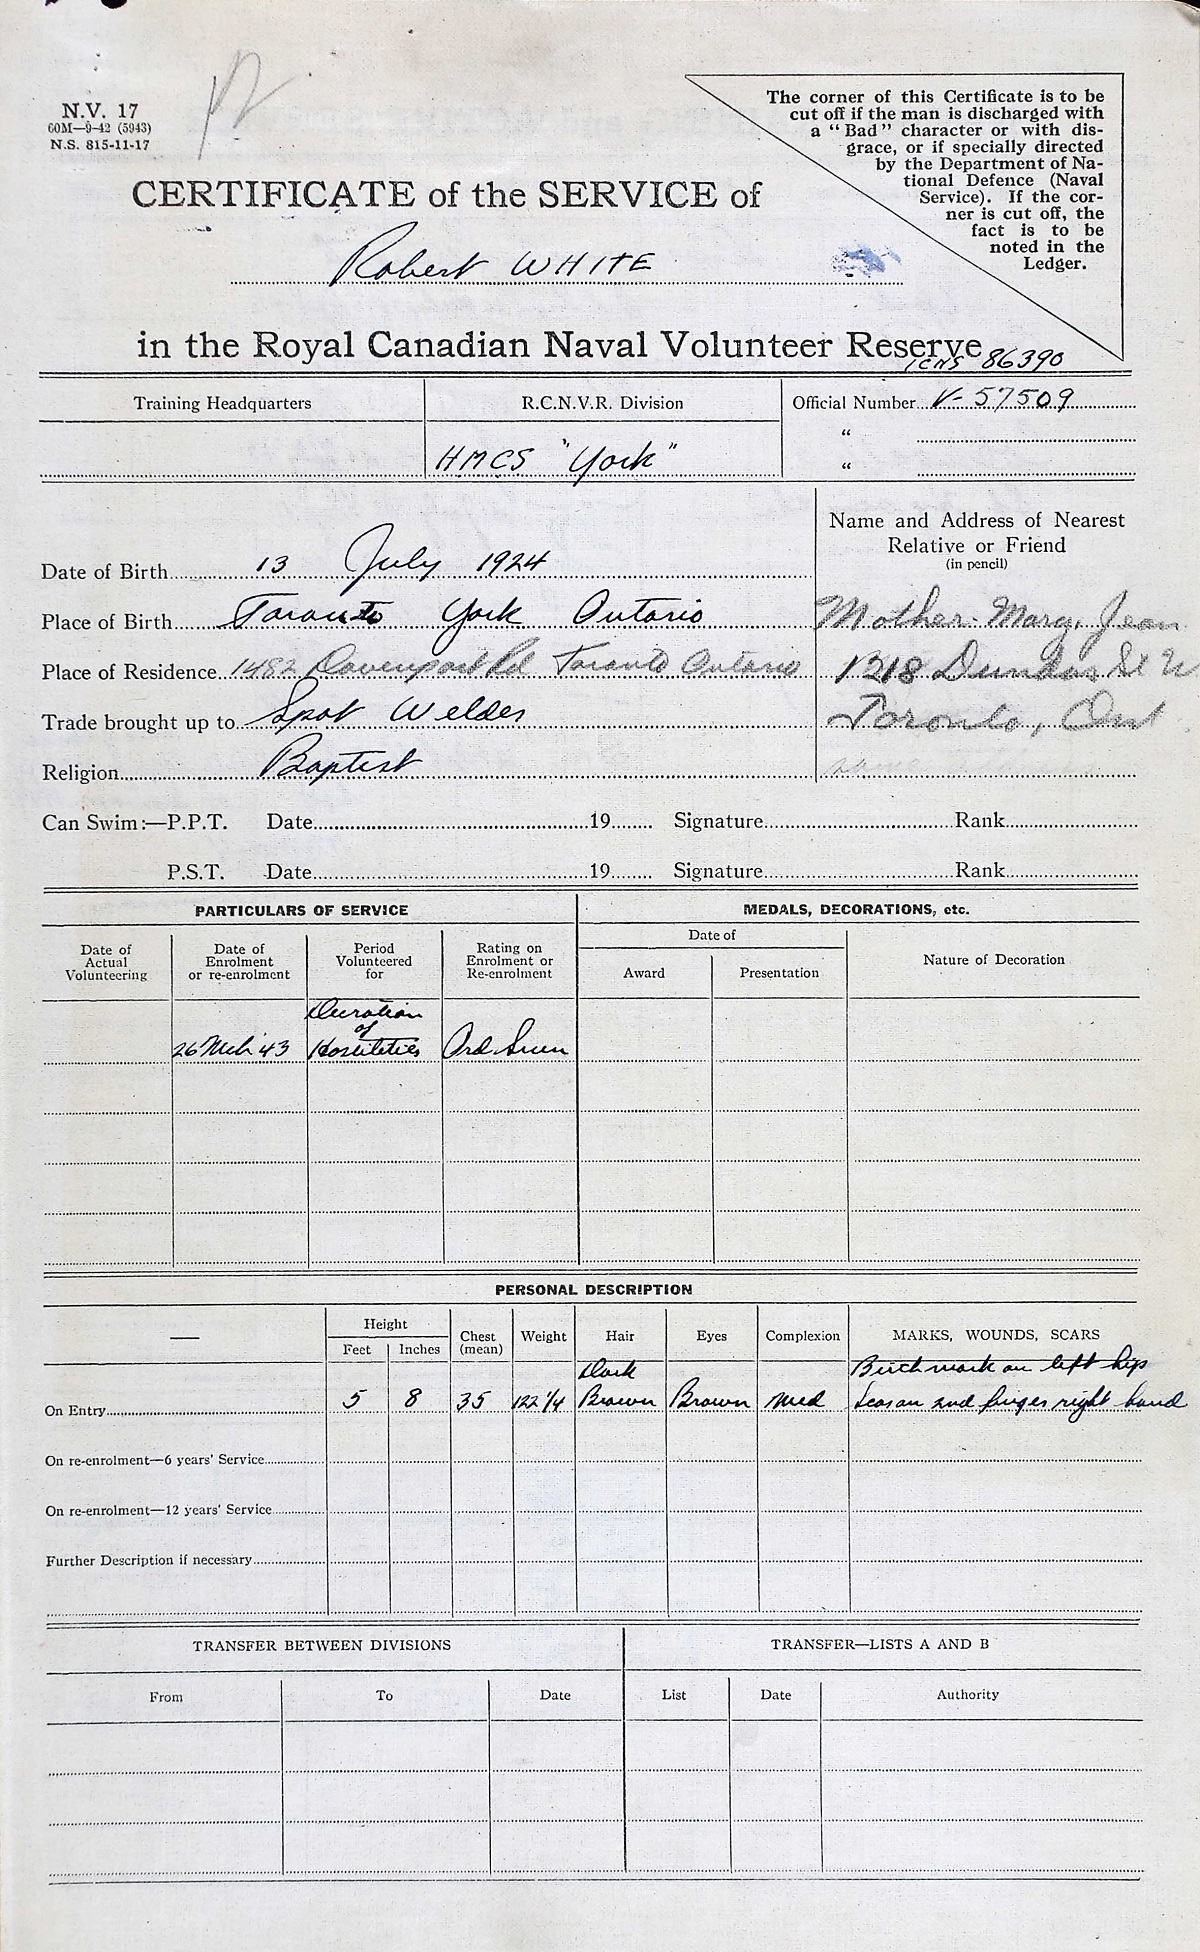 N.V. 17
60M—9-42 (5943)
N.S. 815-11-17
The corner of this Certificate is to be
cut off if the man is discharged with
a "Bad" character or with dis-
grace, or if specially directed
by the Department of Na-
tional Defence (Naval
Service). If the cor-
ner is cut off, the
fact is to be
noted in the
Ledger.
CERTIFICATE of the SERVICE of
Robert WHITE
in the Royal Canadian Naval Volunteer Reserve
ICNS 86390
Training Headquarters R.C.N.V.R. Division Official Number V-57509
"
HMCS "York" "
Name and Address of Nearest
Relative or Friend
(in pencil)
Date of Birth 13 July 1924
Place of Birth Toronto York Ontario Mother: Mary Jean
Place of Residence 1482 Davenport Rd Toronto Ontario 1318 Dundas St W
Trade brought up to Spot Welder Toronto, Ont
Religion Baptist
Can Swim:—P.P.T. Date 19 Signature Rank
P.S.T. Date 19 Signature Rank
PARTICULARS OF SERVICE MEDALS, DECORATIONS, etc.
Date of Actual Volunteering Date of Enrolment or re-enrolment Period Volunteered for Rating on Enrolment or Re-enrolment Date of Award Presentation Nature of Decoration
Duration
of
26 Mch '43 Hostilities Ord Smn
PERSONAL DESCRIPTION
— Height Feet Inches Chest (mean) Weight Hair Eyes Complexion MARKS, WOUNDS, SCARS
Dark Birth mark on left hip
On Entry 5 8 35 122 1/4 Brown Brown Med Scar on 2nd finger right hand
On re-enrolment—6 years' Service
On re-enrolment—12 years' Service
Further Description if necessary
TRANSFER BETWEEN DIVISIONS TRANSFER—LISTS A AND B
From To Date List Date Authority